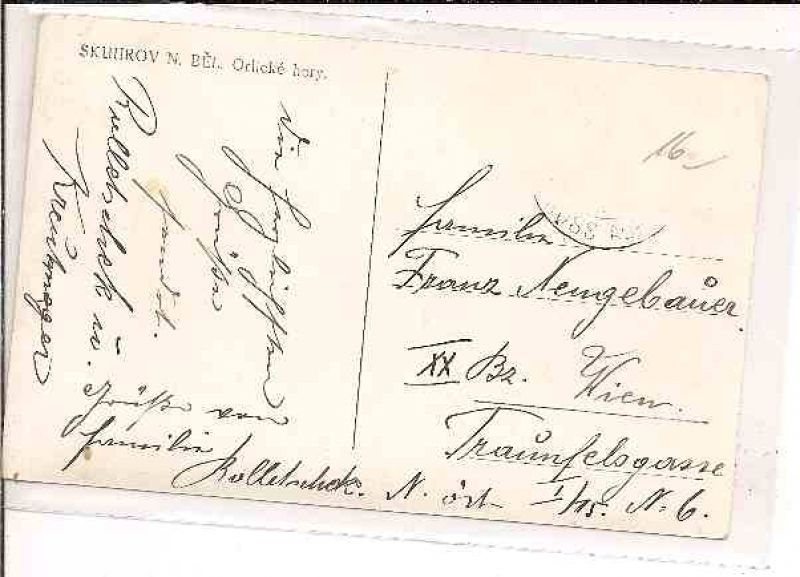 SKUHROV N. BĚL. Orlické hory.
Die herzlichsten
Grüße
sendet
Rolletschek u.
Kreitmeger
Grüße von
familie
Rolletschek. N. öst
16.-
familie
Franz Neugebauer.
XX Bz. Wien.
Traunfelsgasse
1/15. N. 6.